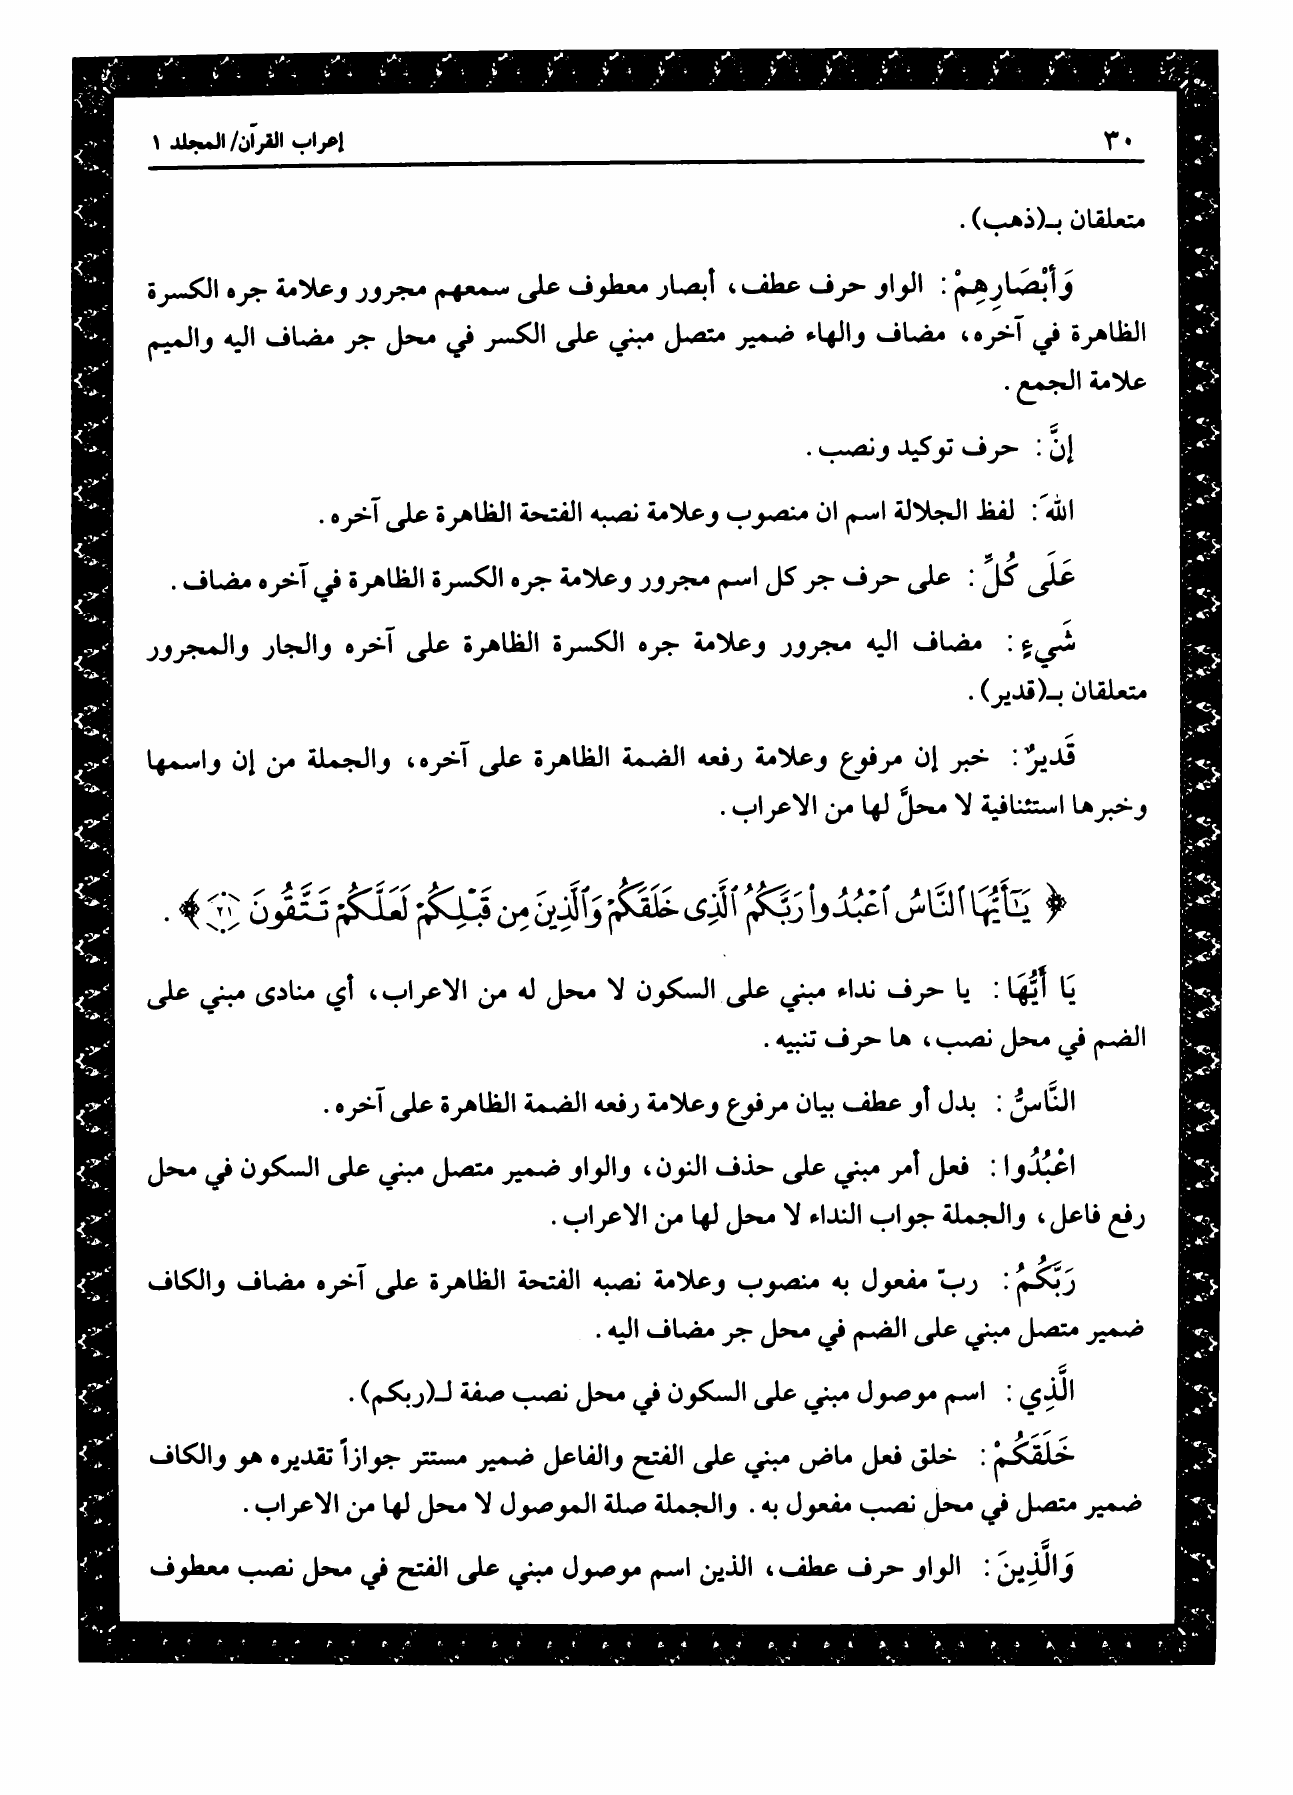 ٣٠
إعراب القرآن/ المجلد ١
متعلقان بـ(ذهب).
وَأَبْصَارِهِمْ: الواو حرف عطف، أبصار معطوف على سمعهم مجرور وعلامة جره الكسرة
الظاهرة في آخره، مضاف والهاء ضمير متصل مبني على الكسر في محل جر مضاف اليه والميم
علامة الجمع.
إنَّ: حرف توكيد ونصب.
اللهَ: لفظ الجلالة اسم ان منصوب وعلامة نصبه الفتحة الظاهرة على آخره.
عَلَى كُلِّ: على حرف جر كل اسم مجرور وعلامة جره الكسرة الظاهرة في آخره مضاف.
شَيءٍ: مضاف اليه مجرور وعلامة جره الكسرة الظاهرة على آخره والجار والمجرور
متعلقان بـ(قدير).
قَديرٌ: خبر إن مرفوع وعلامة رفعه الضمة الظاهرة على آخره، والجملة من إن واسمها
وخبرها استئنافية لا محلَّ لها من الاعراب.
﴿ يَٰٓأَيُّهَا ٱلنَّاسُ ٱعۡبُدُواْ رَبَّكُمُ ٱلَّذِى خَلَقَكُمۡ وَٱلَّذِينَ مِن قَبۡلِكُمۡ لَعَلَّكُمۡ تَتَّقُونَ ٢١ ﴾.
يَا أَيُّهَا: يا حرف نداء مبني على السكون لا محل له من الاعراب، أي منادى مبني على
الضم في محل نصب، ها حرف تنبيه.
النَّاسُ: بدل أو عطف بيان مرفوع وعلامة رفعه الضمة الظاهرة على آخره.
اعْبُدُوا: فعل أمر مبني على حذف النون، والواو ضمير متصل مبني على السكون في محل
رفع فاعل، والجملة جواب النداء لا محل لها من الاعراب.
رَبَّكُمُ: ربّ مفعول به منصوب وعلامة نصبه الفتحة الظاهرة على آخره مضاف والكاف
ضمير متصل مبني على الضم في محل جر مضاف اليه.
الَّذِي: اسم موصول مبني على السكون في محل نصب صفة لـ(ربكم).
خَلَقَكُمْ: خلق فعل ماض مبني على الفتح والفاعل ضمير مستتر جوازاً تقديره هو والكاف
ضمير متصل في محل نصب مفعول به. والجملة صلة الموصول لا محل لها من الاعراب.
وَالَّذِينَ: الواو حرف عطف، الذين اسم موصول مبني على الفتح في محل نصب معطوف